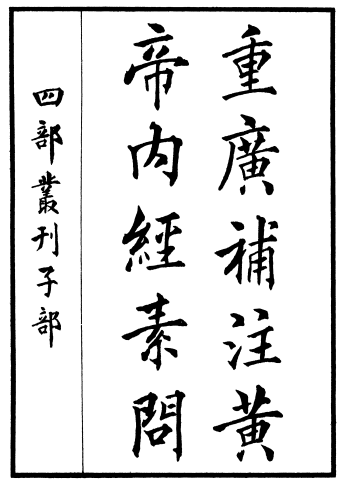 重廣補注黃
帝内經素問
四部叢刊子部